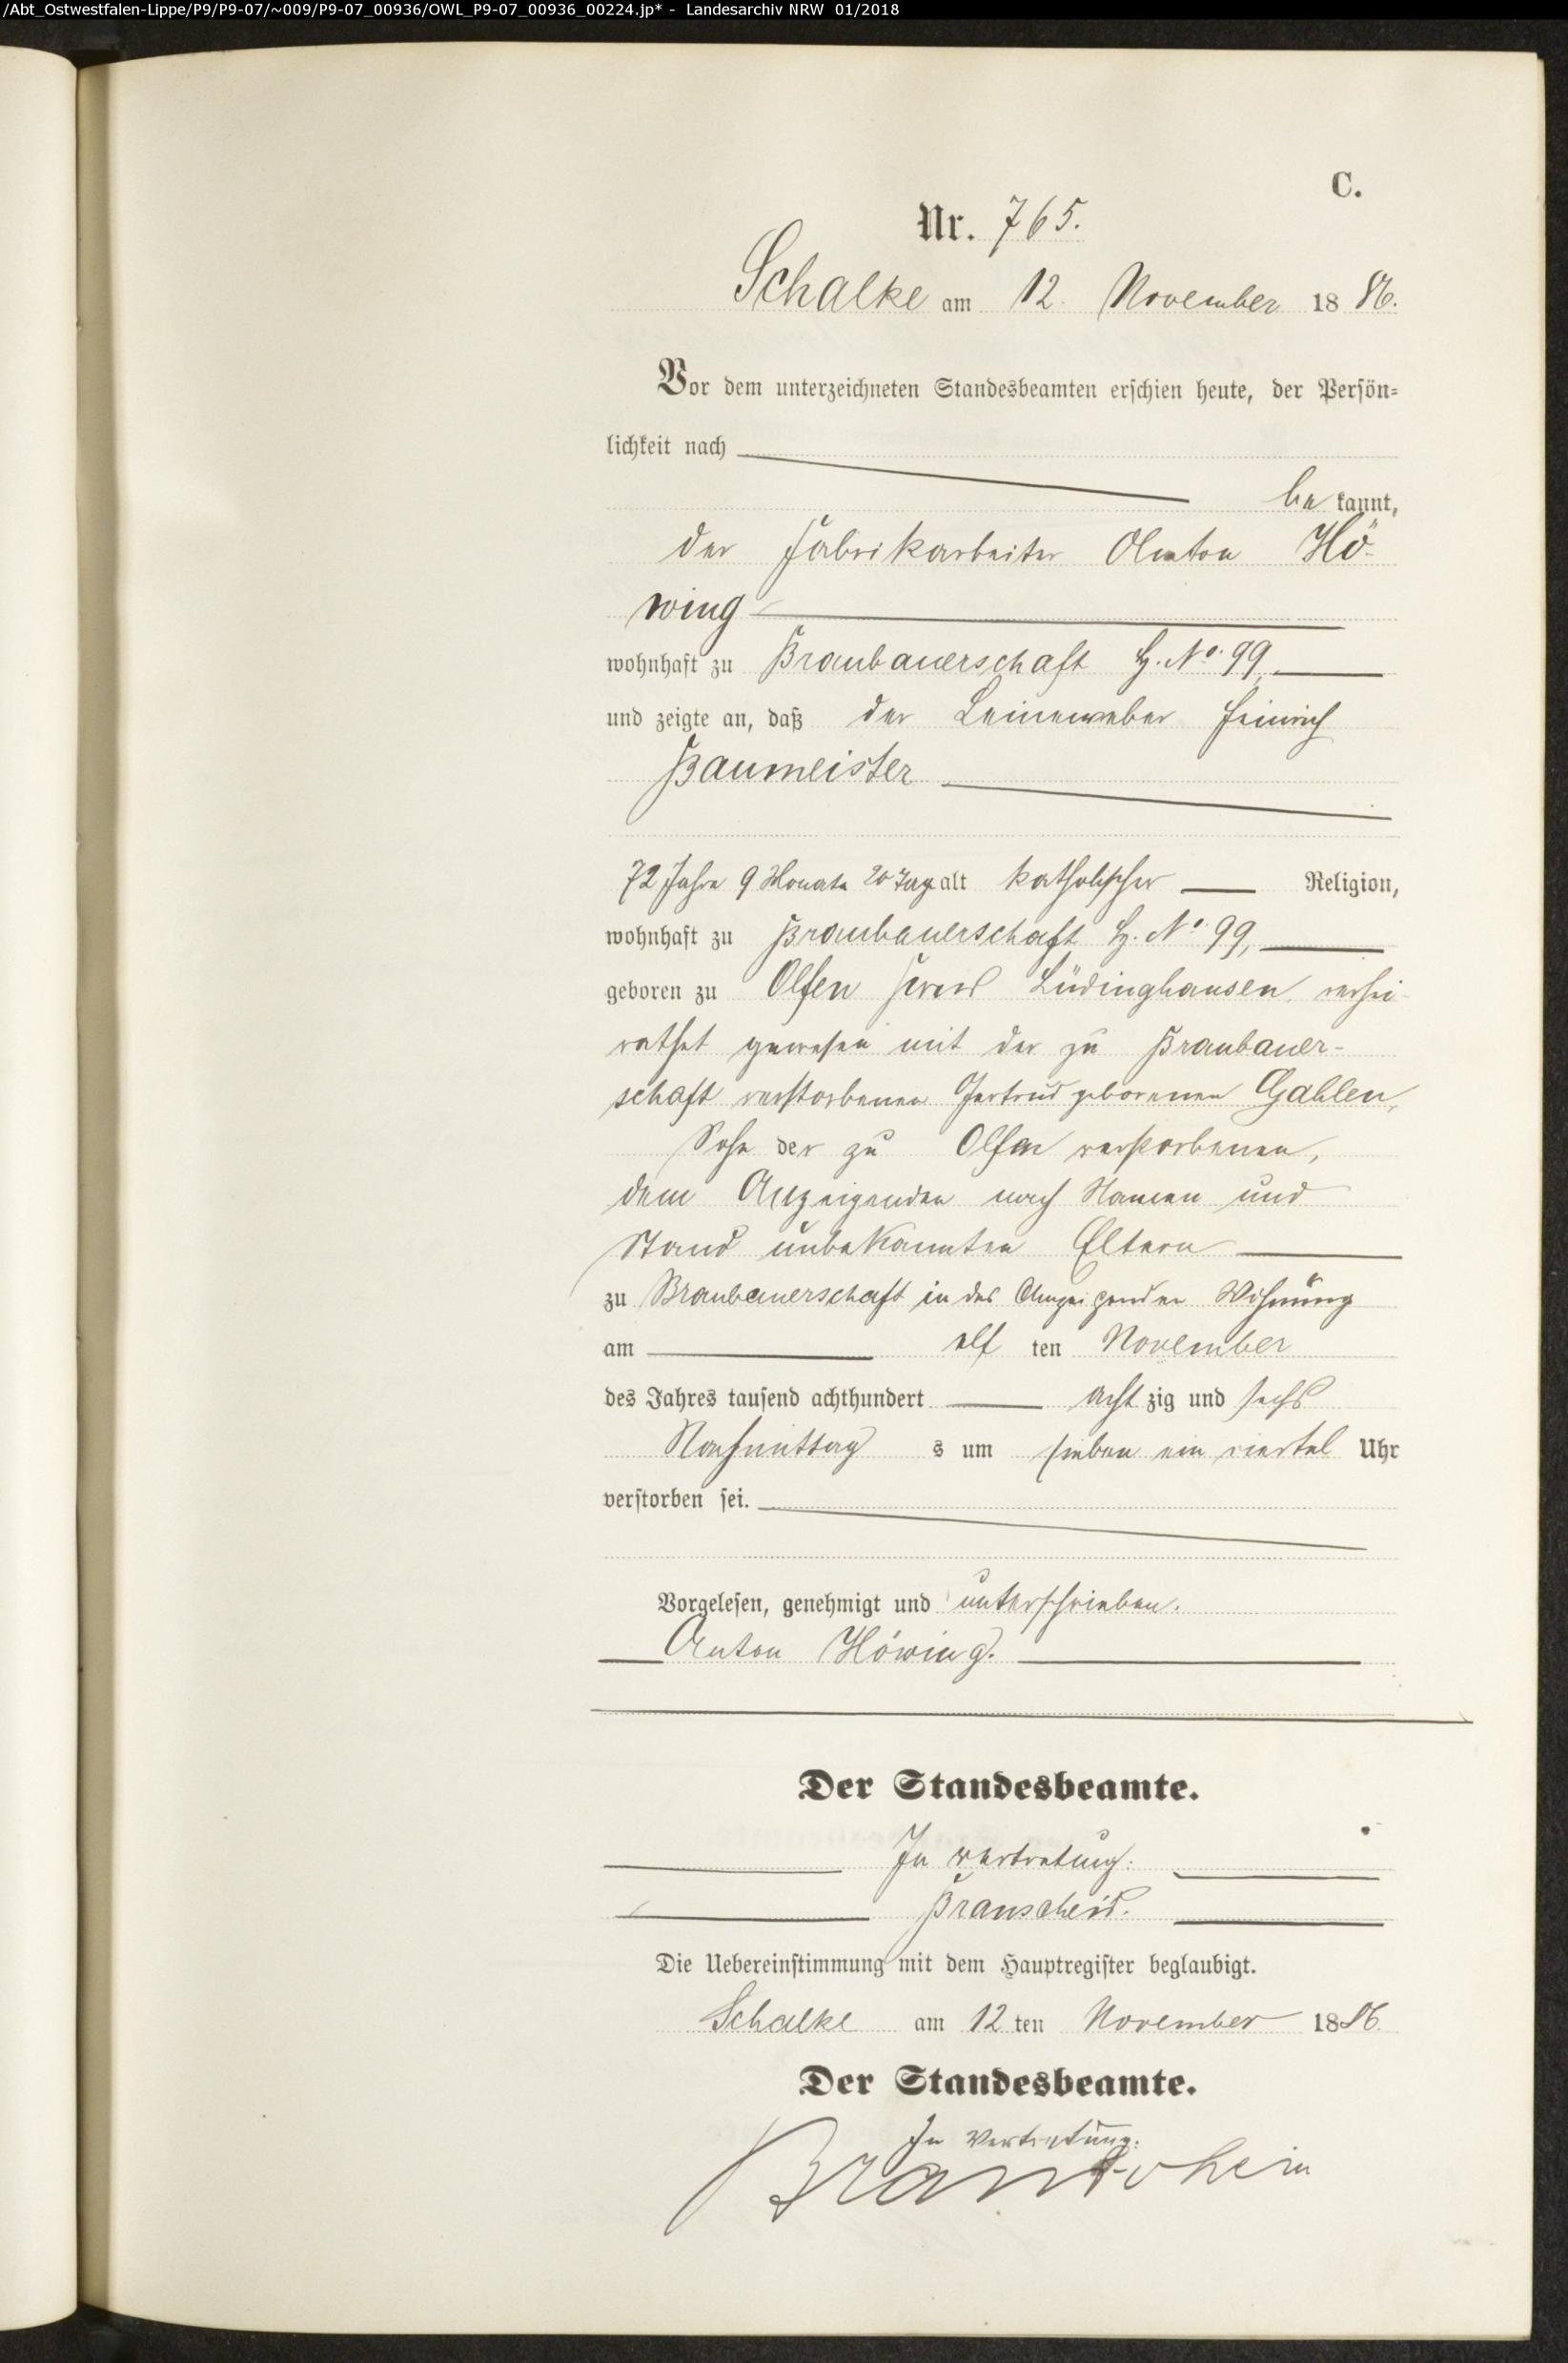 /Abt_Ostwestfalen-Lippe/P9/P9-07/~009/P9-07_00936/OWL_P9-07_00936_00224.jp* - Landesarchiv NRW 01/2018
C.
Nr. 765.
Schalke am 12 November 18 86.
Vor dem unterzeichneten Standesbeamten erschien heute, der Persön-
lichkeit nach
be kannt,
der Fabrikarbeiter Anton Hö-
wing
wohnhaft zu Braubauerschaft H. No. 99,
und zeigte an, daß der Leineweber Heinrich
Baumeister
72 Jahre 9 Monate 20 Tage alt katholischer Religion,
wohnhaft zu Braubauerschaft H. No. 99,
geboren zu Olfen Kreis Lüdinghausen verhei-
rathet gewesen mit der zu Braubauer-
schaft verstorbenen Gertrud geborenen Gahlen,
Sohn der zu Olfen verstorbenen,
dem Anzeigenden nach Namen und
Stand unbekannten Eltern
zu Braubauerschaft in des Anzeigenden Wohnung
am elf ten November
des Jahres tausend achthundert acht zig und sechs
Nachmittag s um sieben ein viertel Uhr
verstorben sei.
Vorgelesen, genehmigt und unterschrieben.
Anton Höwing.
Der Standesbeamte.
In Vertretung:
Branscheid.
Die Uebereinstimmung mit dem Hauptregister beglaubigt.
Schalke am 12 ten November 1886.
Der Standesbeamte.
In Vertretung:
Branscheid